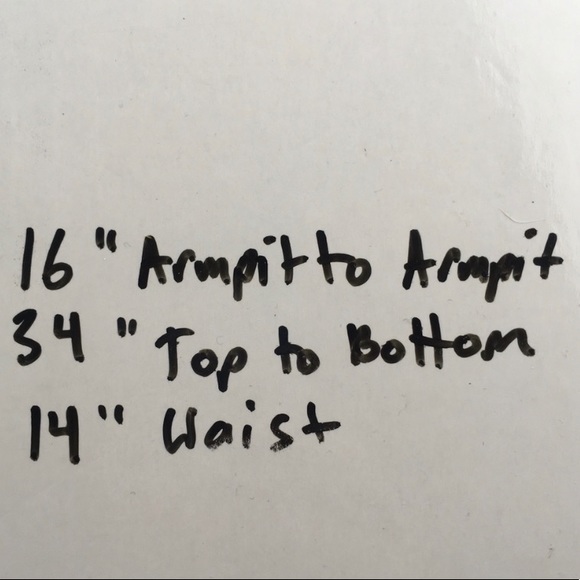 16" Armpit to Armpit
34" Top to Bottom
14" Waist